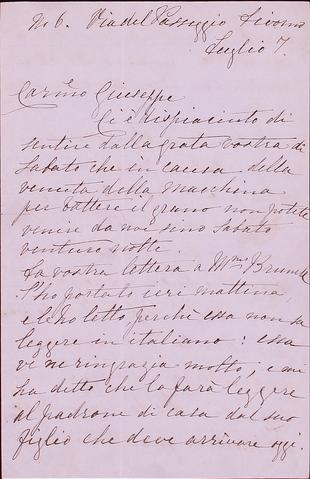 No 6. Via del Passeggio Livorno
Luglio 7.
Carmo Giuseppe
Ci è rispiaciuto di
sentire dalla grata vostra di
Sabato che in causa della
venuta della macchina
per battere il grano non potete
venire da noi sino Sabato
venturo notte.
La vostra lettera a Mrs
l'ho portato ieri mattina,
e le ho letto perchè essa non sa
leggere in italiano: essa
ve ne ringrazia molto, e mi
ha detto che la farà leggere
al padrone di casa dal suo
figlio che deve arrivare oggi.